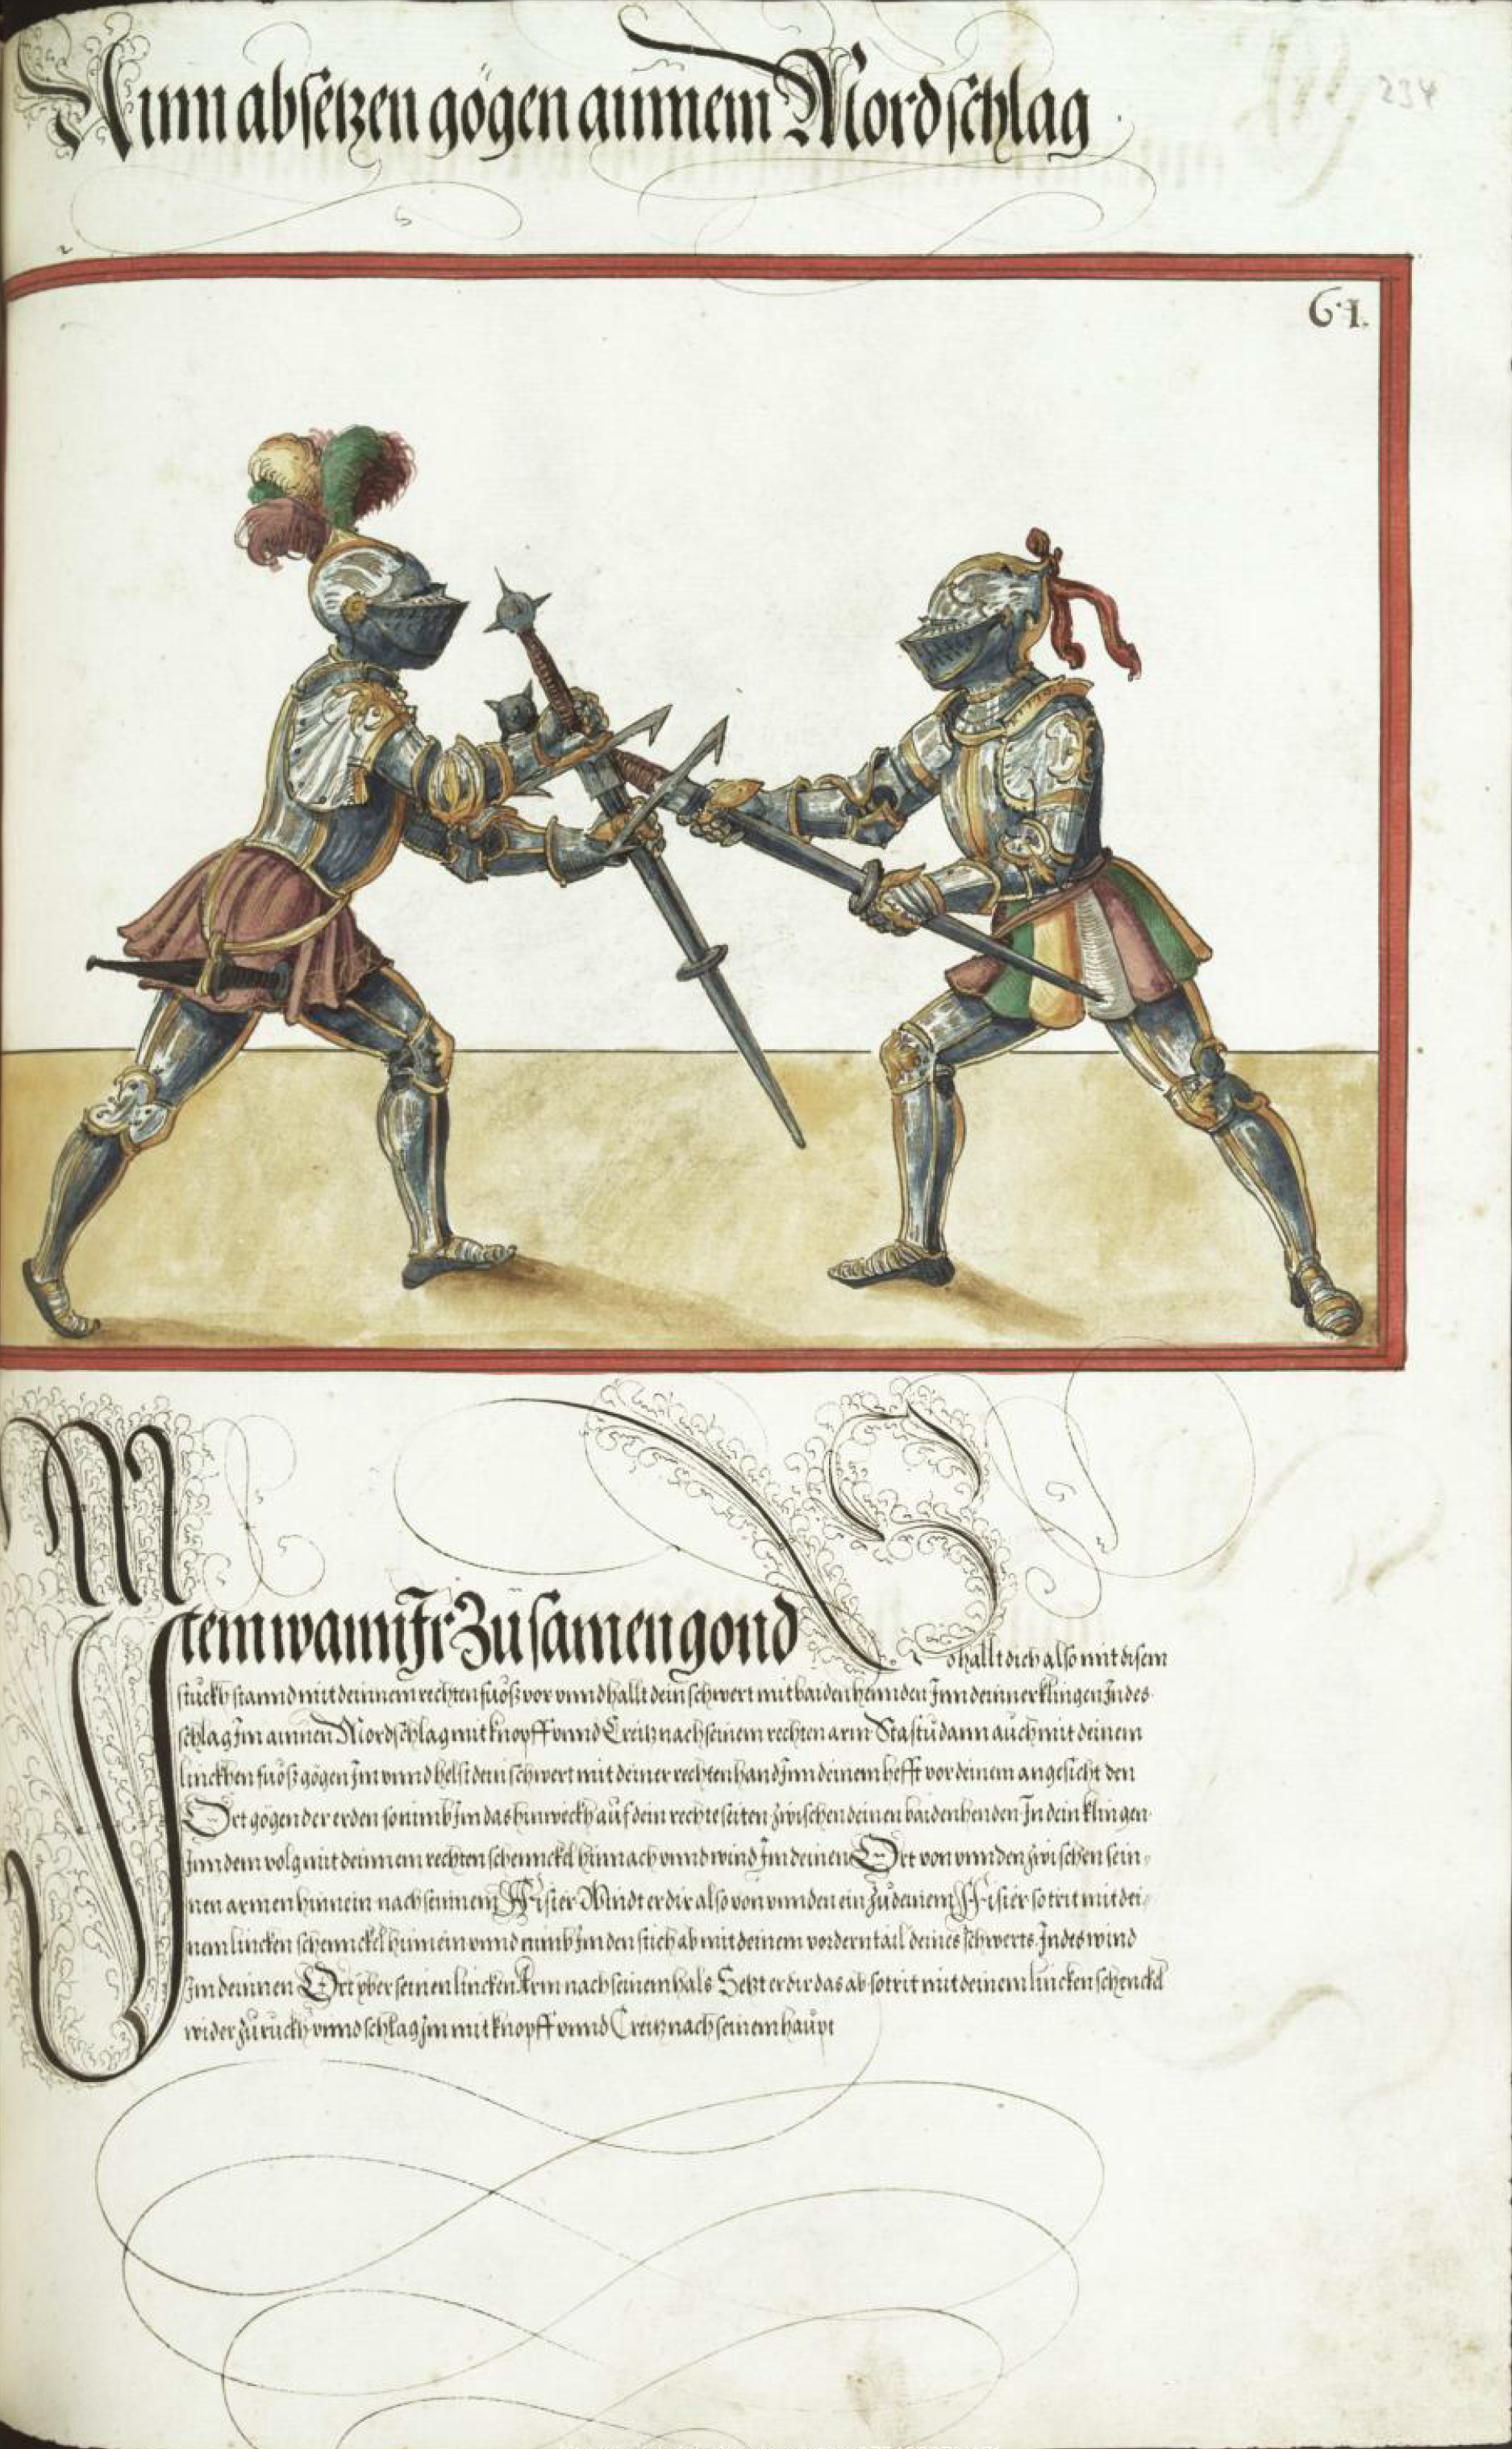 Ainn absetzen gögen ainnem Mordschlag
234
61.
Item wann Ir Zusamen gond So hallt dich also mit disem
stuckh stannd mit deinnem rechten fuoß vor vnnd hallt dein schwert mit baiden hennden Inn deinner klingen Indes
schlag Im ainnen Mordschlag mit knopff vnnd Creitz nach seinem rechten arm Stastu dann auch mit deinem
linckhen fuoß gögen Im vnnd helst dein schwert mit deiner rechten hand Inn deinem hefft vor deinem angesicht den
Ort gögen der erden so nimb Im das hinweckh auf dein rechte seiten zwischen deinen baiden henden In dein klingen
Inn dem volg mit deinnem rechten schennckel hinnach vnnd wind Im deinen Ort von vnnden zwischen sein-
nen armen hinnein nach seinnem Fisier Windt er dir also von vnnden ein zu deinem Fisier so trit mit dei-
nem lincken schennckel hinnein vnnd nimb Im den stich ab mit deinem vordern tail deines schwerts Indes wind
Im deinnen Ort yber seinen lincken Arm nach seinem hals Setzt er dir das ab so trit mit deinem lincken schenckel
wider zuruckh vnnd schlag Im mit knopff vnnd Creitz nach seinem haupt